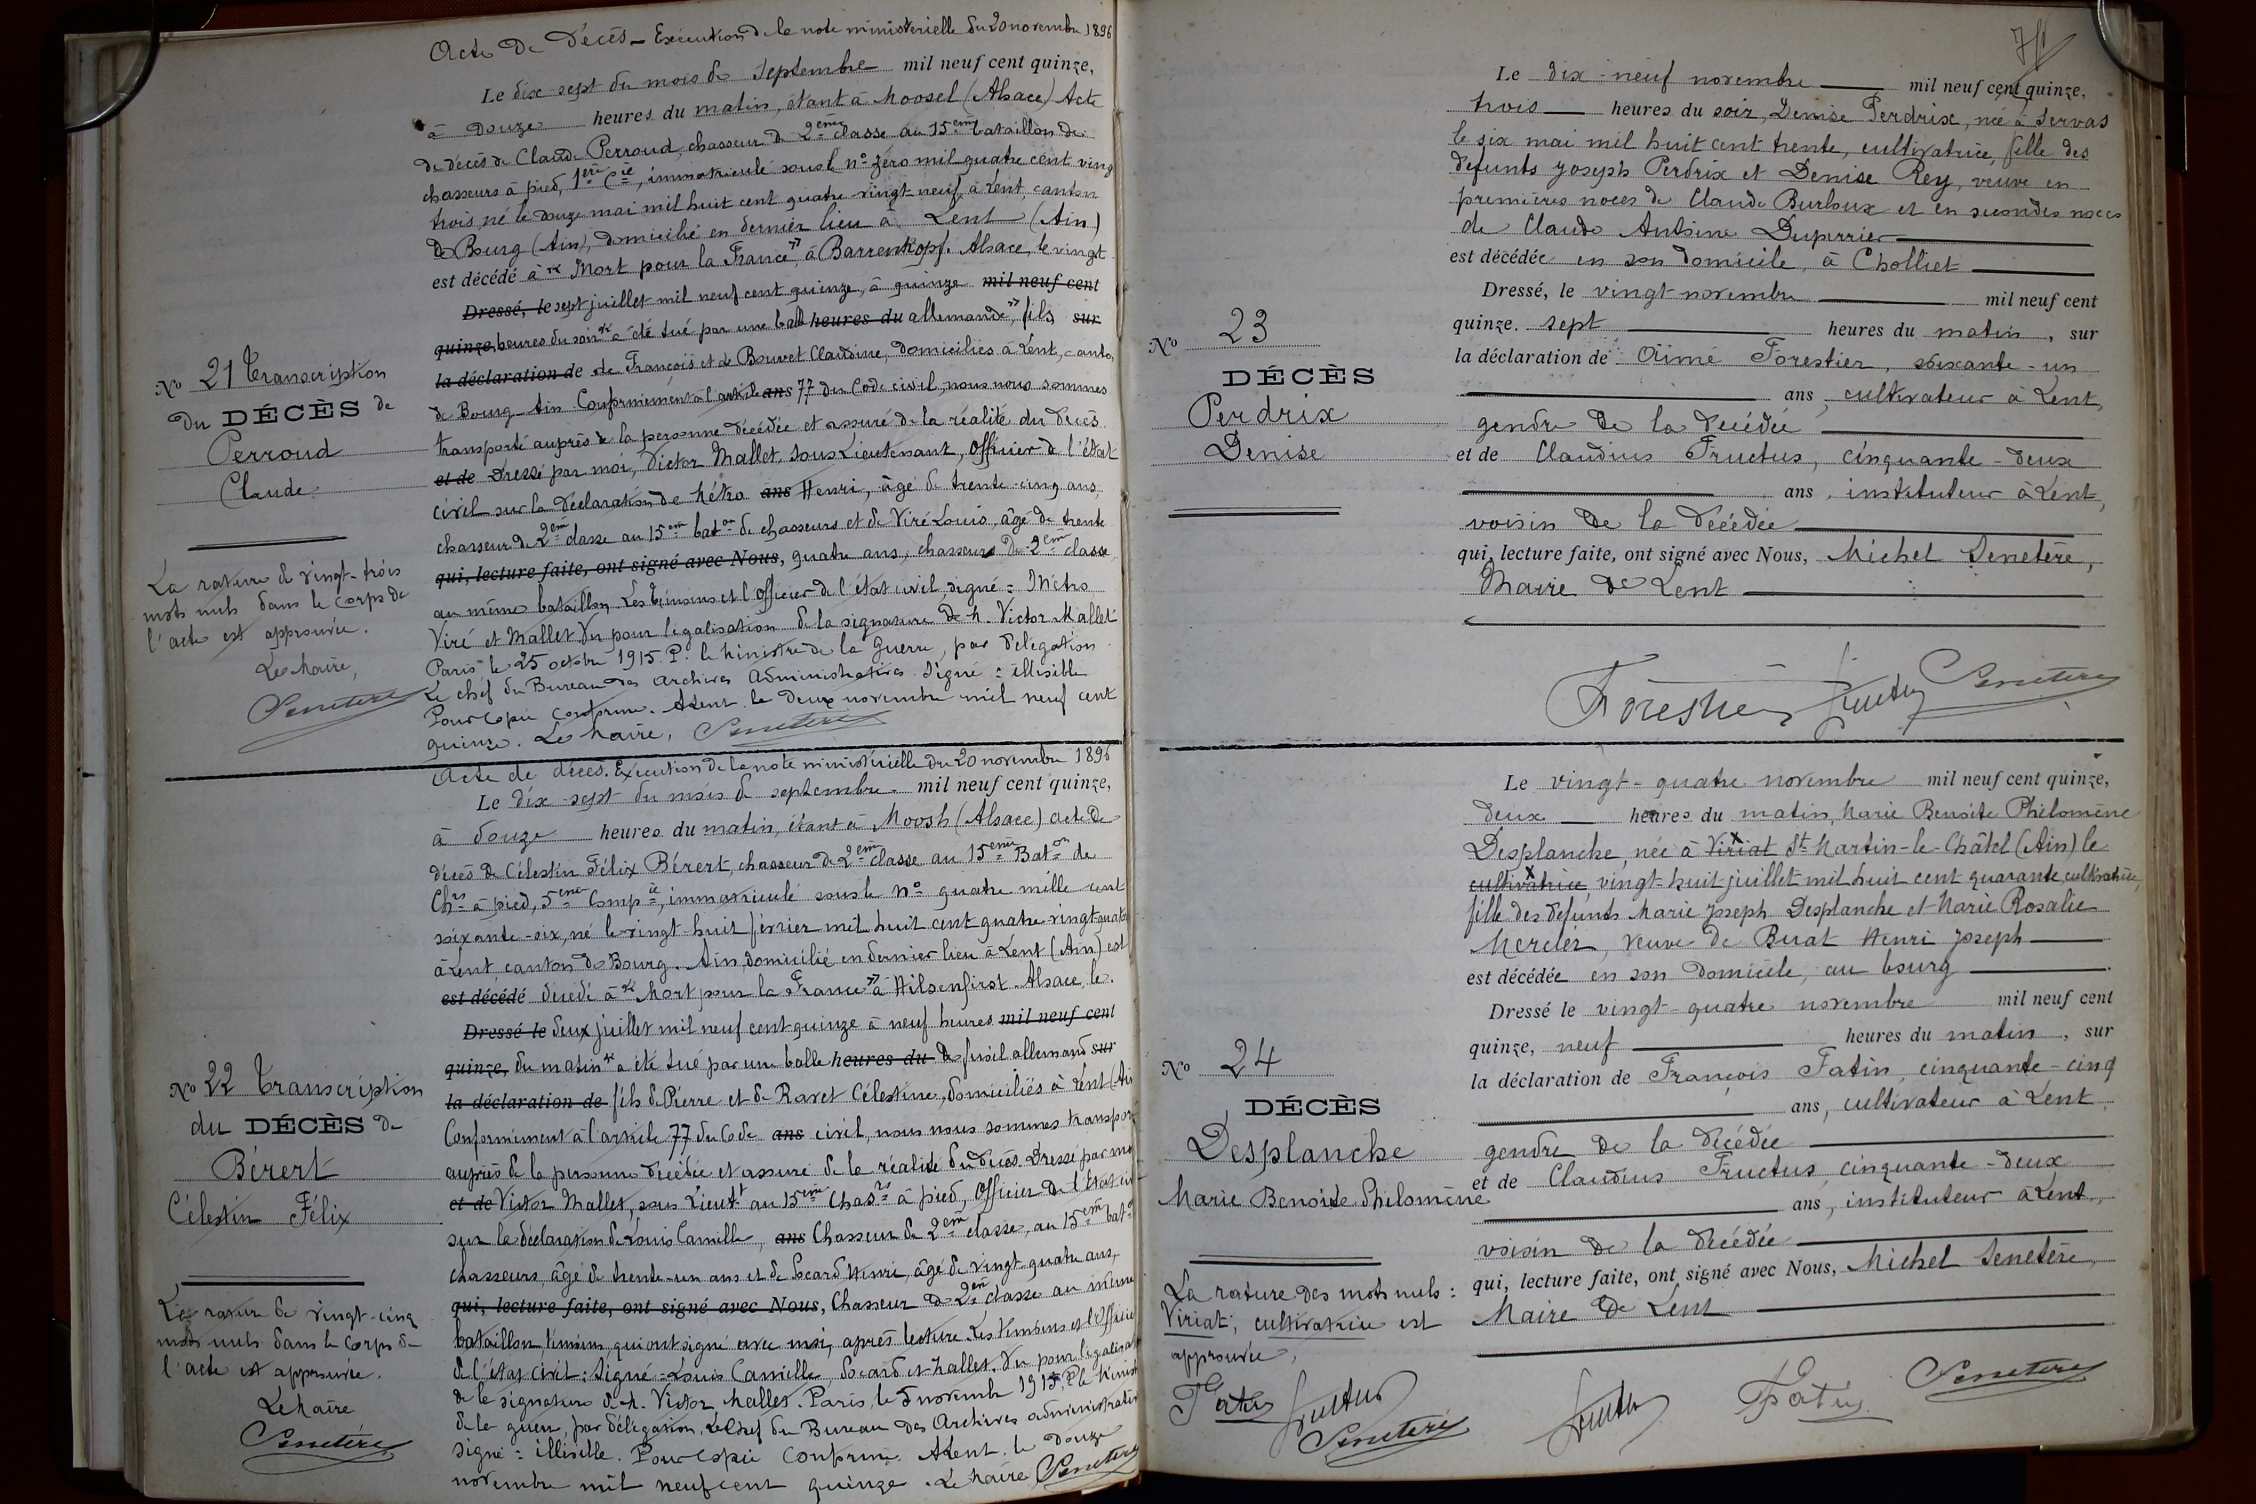 Acte de Décès – Exécution de la note ministérielle du 20 novembre 1896
Le dix sept du mois de Septembre mil neuf cent quinze,
à Douze heures du matin, étant à Moosel (Alsace) Acte
de décès de Claude Perroud, chasseur de 2eme classe au 15eme bataillon de
chasseurs à pied, 1ere Cie, immatriculé sous le n° zéro mil quatre cent vingt
trois, né le douze mai mil huit cent quatre-vingt-neuf, à Lent, canton
de Bourg (Ain), domicilié en dernier lieu à Lent (Ain)
est décédé à « Mort pour la France », à Barrenkopf. Alsace, le vingt
Dressé, le sept juillet mil neuf cent quinze, à quinze mil neuf cent
quinze, heures du soir « a été tué par une balle heures du allemande », fils sur
la déclaration de de François et de Bouvet Claudine, domiciliés à Lent, canton
de Bourg Ain Conformément à l'article ans 77 du Code civil, nous nous sommes
transporté auprès de la personne décédée et assuré de la réalité du décès
et de Dressé par moi, Victor Mallet, Sous Lieutenant, Officier de l'état
civil sur la déclaration de Métro ans Henri, âgé de trente-cinq ans,
chasseur de 2eme classe au 15eme baton de chasseurs et de Viré Louis, âgé de trente
qui, lecture faite, ont signé avec Nous, quatre ans, chasseur de 2eme classe
au même bataillon Les témoins et l'officier de l'état civil, signé : Métro
Viré et Mallet Vu pour légalisation de la signature de M. Victor Mallet
Paris le 25 octobre 1915. P. le Ministre de la Guerre, par délégation
Le chef du Bureau des Archives Administratives. Signé : illisible
Pour Copie conforme. A Lent le deux novembre mil neuf cent
quinze. Le Maire, Senetère
No 21 Transcription
du DÉCÈS de
Perroud
Claude
La rature de vingt-trois
mots nuls dans le corps de
l'acte est approuvée.
Le Maire,
Senetère
Acte de décès. Exécution de la note ministérielle du 20 novembre 1896
Le dix-sept du mois de septembre mil neuf cent quinze,
à douze heures du matin, étant à Moosh (Alsace) acte de
décès de Célestin Félix Bérert, chasseur de 2eme classe au 15eme Baton de
Chrs à pied, 5eme Compie, immatriculé sous le n° quatre mille cent
soixante-six, né le vingt-huit février mil huit cent quatre-vingt-quatre
à Lent canton de Bourg. Ain, domicilié en dernier lieu à Lent (Ain) est
est décédé décédé à « Mort pour la France » à Hilsenfirst. Alsace, le.
Dressé le deux juillet mil neuf cent quinze à neuf heures mil neuf cent
quinze, du matin « a été tué par une balle heures du de fusil allemand sur
la déclaration de fils de Pierre et de Ravet Célestine, domiciliés à Lent (Ain
Conformément à l'article 77 du Code ans civil, nous nous sommes transporté
auprès de la personne décédée et assuré de la réalité du décès. Dressé par moi
et de Victor Mallet, sous Lieutt au 15eme Chasrs à pied, Officier de l'Etat civil
sur la déclaration de Louis Camille, ans Chasseur de 2eme classe, au 15eme baton
chasseurs, âgé de trente-un ans et de Socard Henri, âgé de vingt quatre ans,
qui, lecture faite, ont signé avec Nous, Chasseur de 2eme classe au même
bataillon témoins, qui ont signé avec moi, après lecture. Les témoins et l'Officier
de l'état civil : Signé = Louis Camille, Socard et Mallet. Vu pour légalisation
de la signature de M. Victor Mallet. Paris, le 5 novembre 1915, P le Ministre
de la guerre, par délégation, Le Chef du Bureau des Archives administratives
signé : illisible. Pour Copie Conforme A Lent. le Douze
novembre mil neuf cent quinze. Le Maire Senetère
No 22 Transcription
du DÉCÈS de
Bérert
Célestin Félix
La rature de vingt-cinq
mots nuls dans le corps de
l'acte est approuvée.
Le Maire
Senetère
Le dix-neuf novembre mil neuf cent quinze,
trois heures du soir, Denise Perdrix, née à Servas
le six mai mil huit cent trente, cultivatrice, fille des
défunts Joseph Perdrix et Denise Rey, veuve en
premières noces de Claude Burloux et en secondes noces
de Claude Antoine Duperrier
est décédée en son domicile, à Cholliet
Dressé, le vingt novembre mil neuf cent
quinze. sept heures du matin, sur
la déclaration de Aimé Forestier, soixante-un
ans, cultivateur à Lent,
gendre de la décédée
et de Claudius Fructus, cinquante-deux
ans, instituteur à Lent,
voisin de la décédée
qui, lecture faite, ont signé avec Nous, Michel Senetère,
Maire de Lent
Forestier Fructus Senetère
No 23
DÉCÈS
Perdrix
Denise
Le vingt-quatre novembre mil neuf cent quinze,
deux heures du matin, Marie Benoite Philomène
Desplanche, née à Viriat St Martin-le-Châtel (Ain) le
cultivatrice vingt-huit juillet mil huit cent quarante, cultivatrice,
fille des défunts Marie Joseph Desplanche et Marie Rosalie
Mercier, veuve de Buat Henri Joseph
est décédée en son domicile, au bourg
Dressé le vingt-quatre novembre mil neuf cent
quinze, neuf heures du matin, sur
la déclaration de François Fatin, cinquante-cinq
ans, cultivateur à Lent,
gendre de la décédée
et de Claudius Fructus, cinquante-deux
ans, instituteur à Lent,
voisin de la décédée
qui, lecture faite, ont signé avec Nous, Michel Senetère,
Maire de Lent
Fructus Fatin Senetère
No 24
DÉCÈS
Desplanche
Marie Benoite Philomène
La rature des mots nuls :
Viriat, cultivatrice est
approuvée,
Fatin Fructus
Senetère